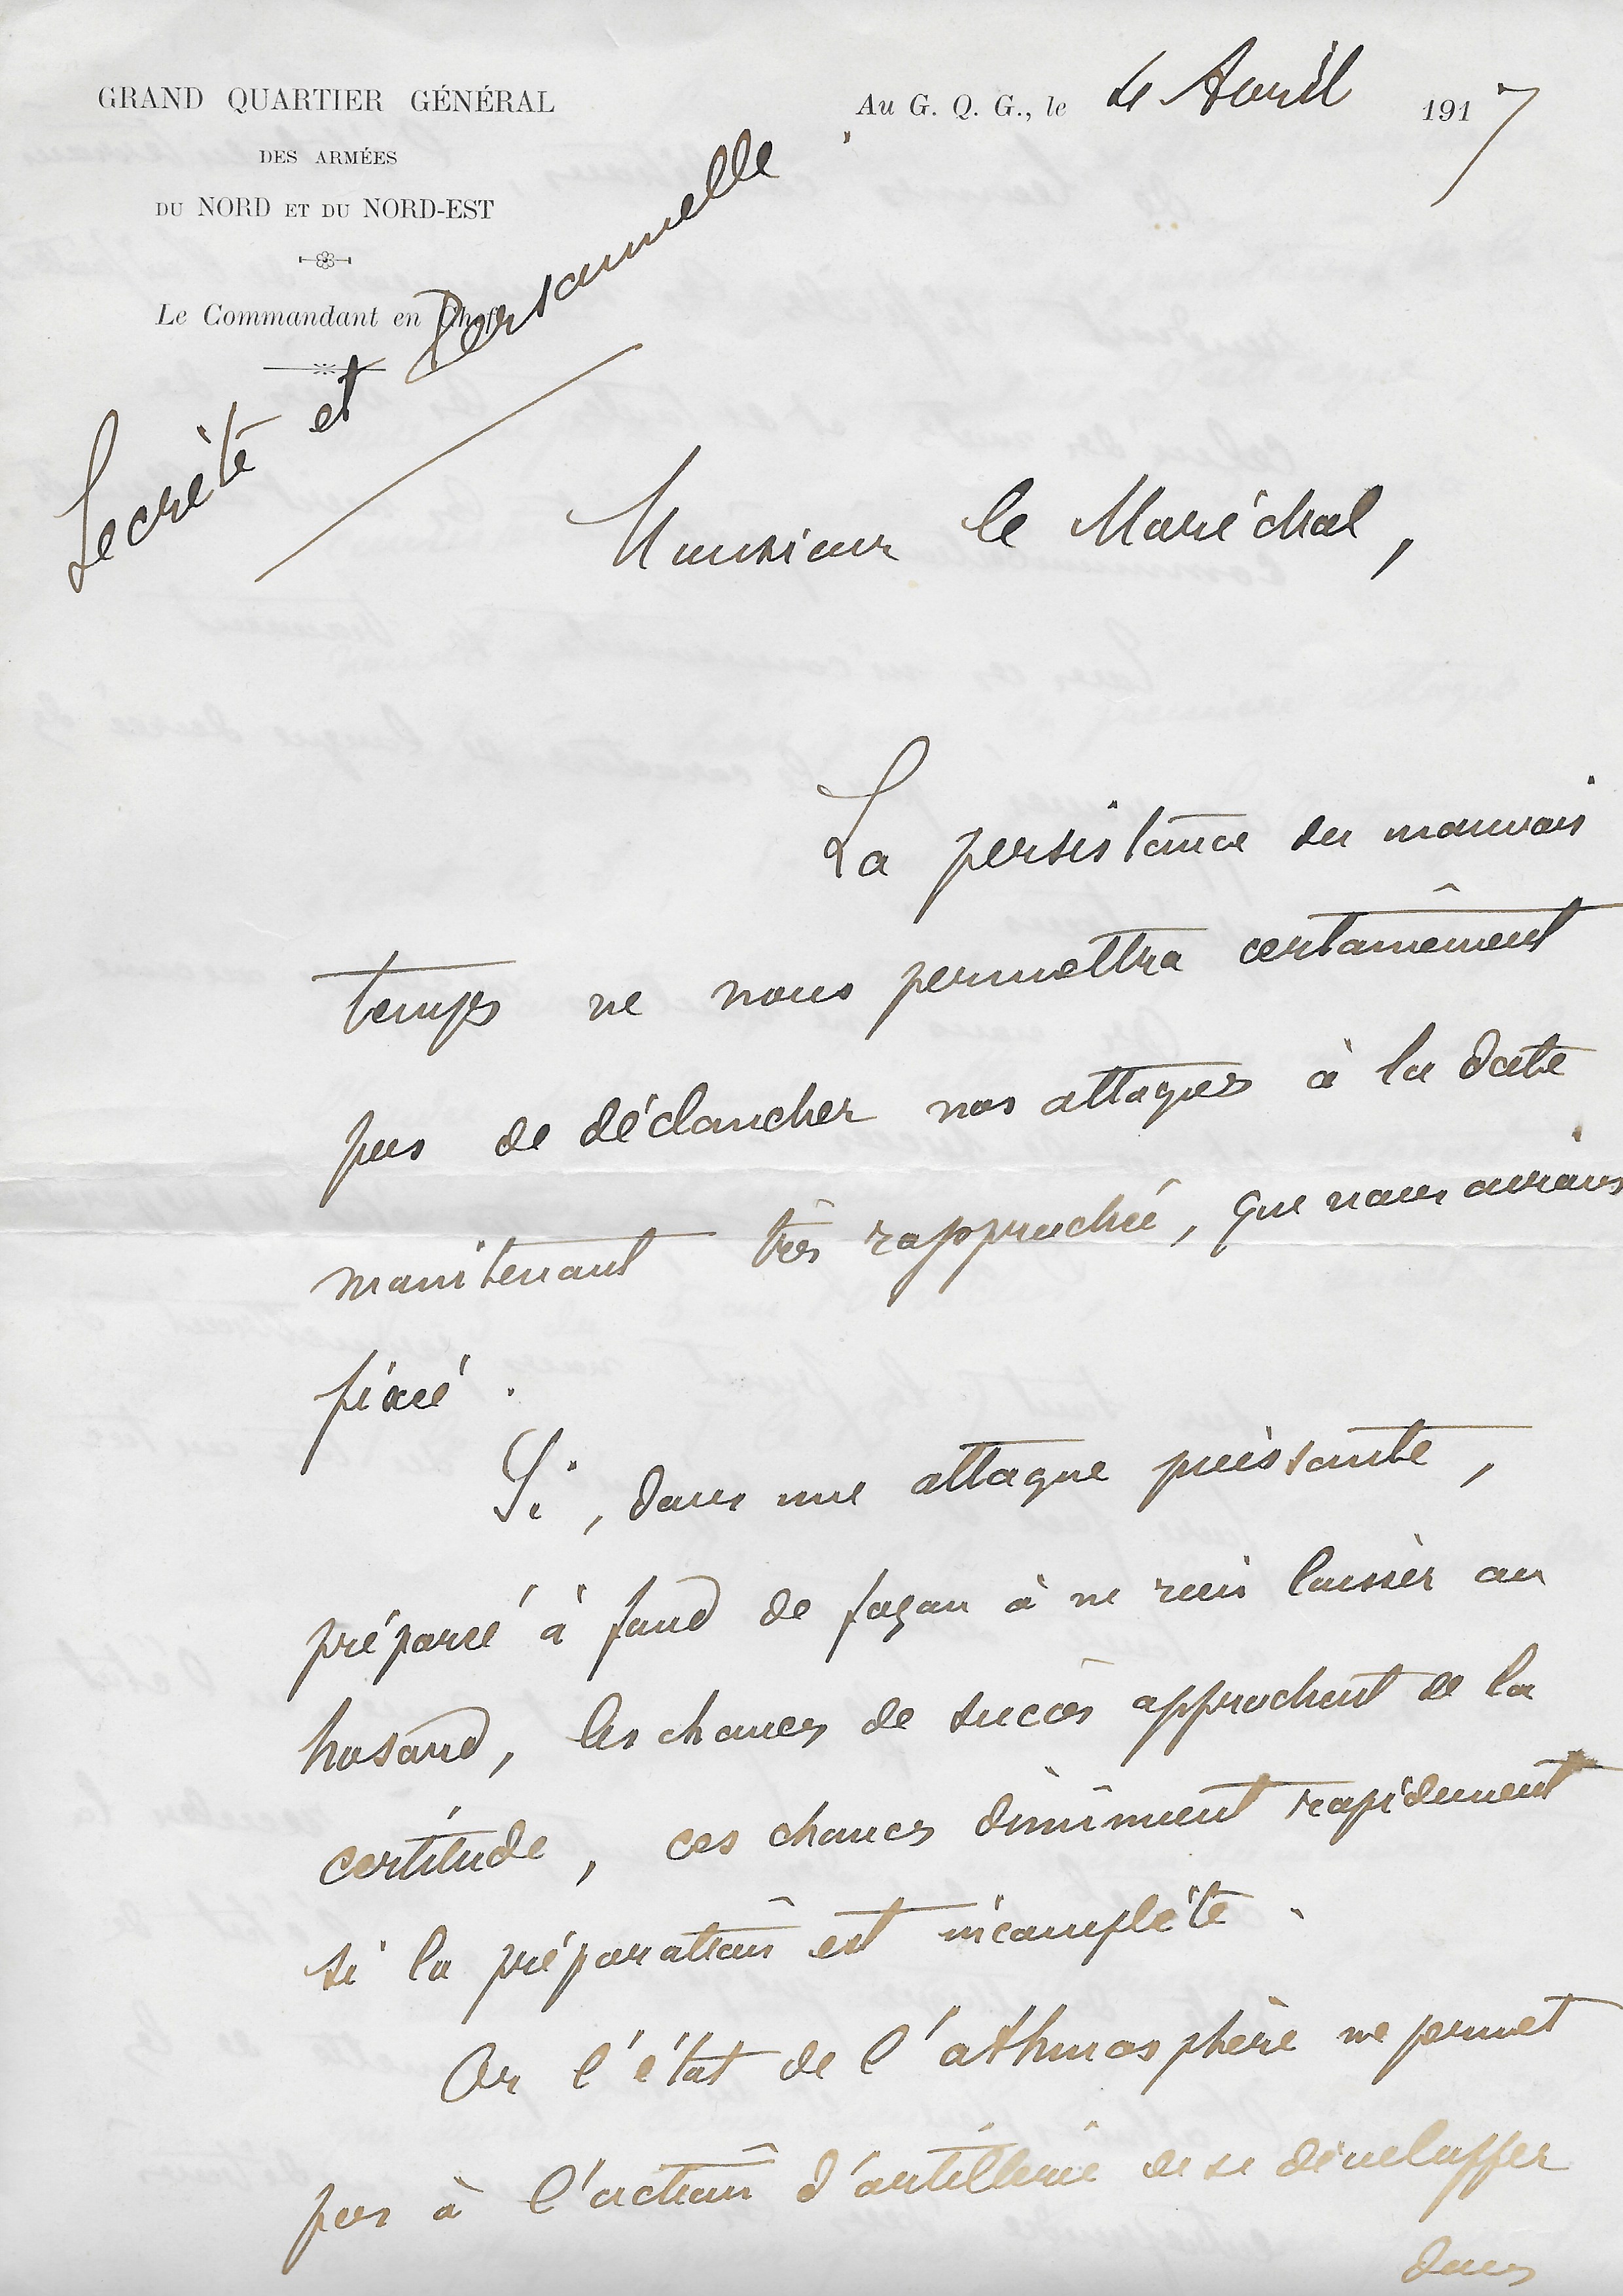 GRAND QUARTIER GÉNÉRAL
DES ARMÉES
DU NORD ET DU NORD-EST
Le Commandant en Chef
Au G. Q. G., le 4 Avril 1917
Secrète et Personnelle
Monsieur le Maréchal,
La persistance du mauvais
temps ne nous permettra certainement
pas de déclancher nos attaques à la date
maintenant très rapprochée, que nous avions
fixée.
Si, dans une attaque puissante,
préparée à fond de façon à ne rien laisser au
hasard, les chances de succès approchent de la
certitude, ces chances diminuent rapidement
si la préparation est incomplète.
Or l'état de l'athmosphère ne permet
pas à l'action d'artillerie de se développer
dans